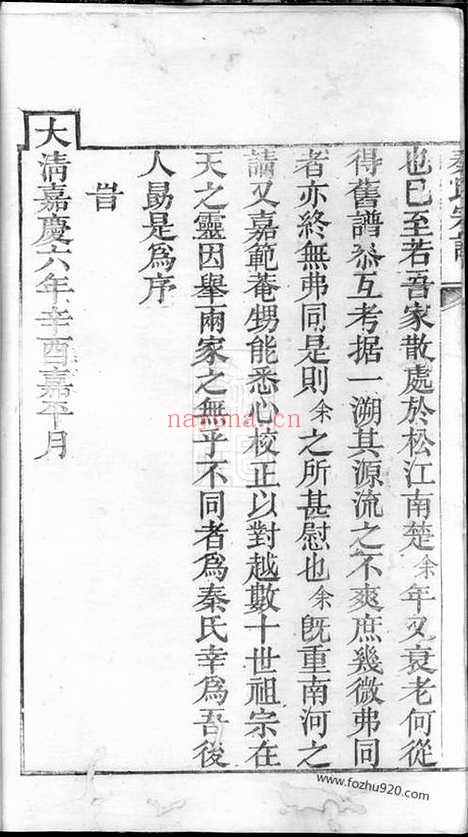 也已至若吾家散處於松江南楚余年又衰老何從
得舊譜叅互考据一溯其源流之不爽庶幾微弗同
者亦終無弗同是則余之所甚慰也余既重南河之
請又嘉範菴甥能悉心校正以對越數十世祖宗在
天之靈因舉兩家之無乎不同者為秦氏幸為吾後
人勗是為序
旹
大清嘉慶六年辛酉嘉平月
nayona.cn
www.fozhu920.com